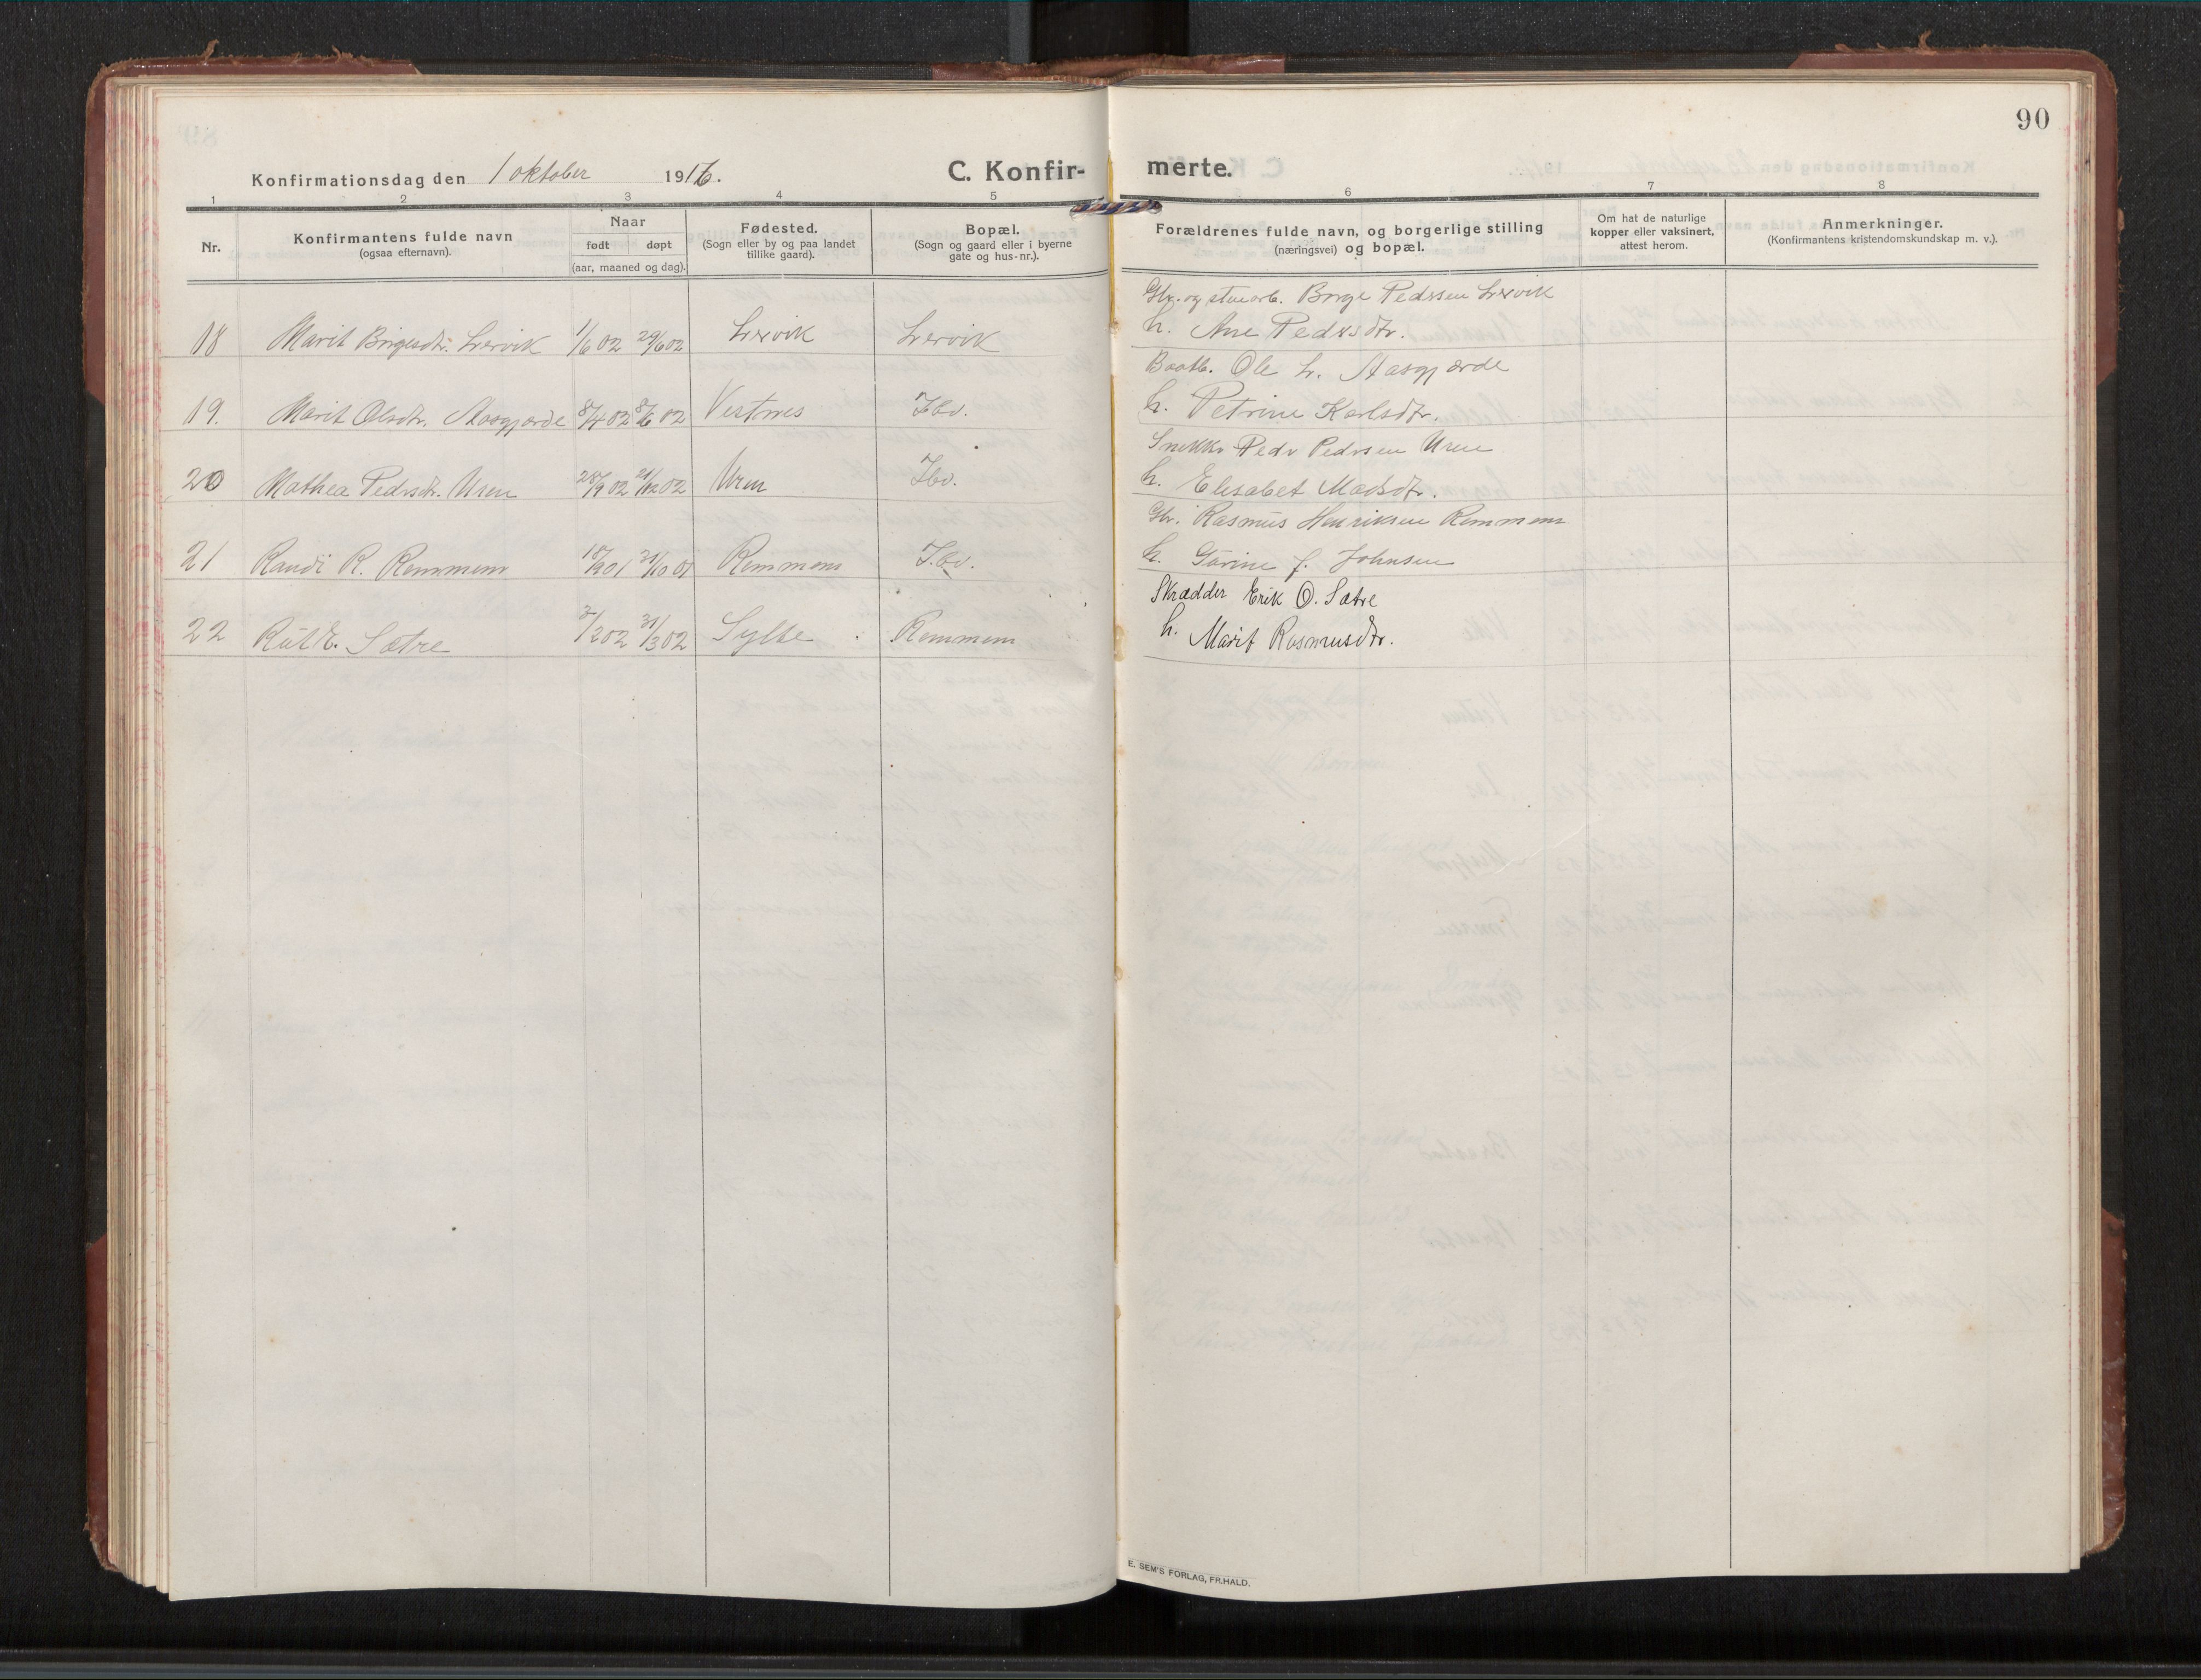 90
Konfirmationsdag den 1 oktober 1916. C. Konfirmerte.
1 2 3 4 5 6 7 8
Nr.
Konfirmantens fulde navn
(ogsaa efternavn).
Naar
født døpt
(aar, maaned og dag).
Fødested.
(Sogn eller by og paa landet
tillike gaard).
Bopæl.
(Sogn og gaard eller i byerne
gate og hus-nr.).
Forældrenes fulde navn, og borgerlige stilling
(næringsvei) og bopæl.
Om hat de naturlige
kopper eller vaksinert,
attest herom.
Anmerkninger.
(Konfirmantens kristendomskundskap m. v.).
Gbr. og stenarb. Børge Pedersen Lervik
18 Marit Børgesdtr. Lervik 1/6 02 29/6 02 Lervik Lervik h. Ane Pedersdtr.
Baatb. Ole L. Aasgjærde
19. Marit Olsdtr. Aasgjærde 8/4 02 8/6 02 Vestnes Ibv. h. Petrine Karlsdtr.
Snekker Peder Pedersen Uren
20 Mathea Pedersdtr. Uren 28/9 02 21/12 02 Uren Ibv. h. Elisabet Madsdtr.
Gbr. Rasmus Henriksen Remmem
21 Randi R. Remmem 18/9 01 31/10 01 Remmem Ibv. h. Gurine f. Johnsen
Skrædder Erik O. Sætre
22 Rut E. Sætre 3/2 02 31/3 02 Sylte Remmem h. Marit Rasmusdtr.
E. SEM'S FORLAG, FR.HALD.